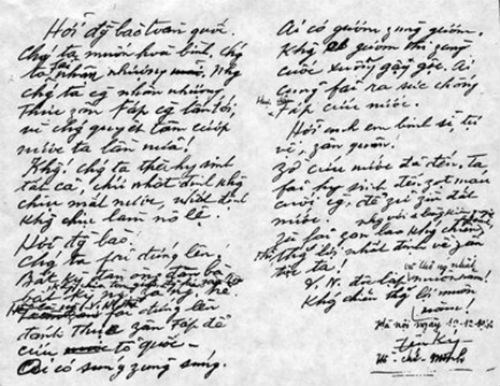 Hỡi đg bào toàn quốc.
Chg ta muốn hoà bình, chg
ta fải nhân nhượng. Nhg
chg ta cg nhân nhượng
Thực zân Fáp cg lấn tới,
vì chg quyết tâm cướp
nước ta lần nữa!
Khg! chg ta thà hy sinh
tất cả, chứ nhất định khg
chịu mất nước, nhất định
khg chịu làm nô lệ.
Hỡi đg bào!
Chg ta fải đứng lên!
Bất kỳ đàn ông đàn bà
bất kỳ ng già ng trẻ
fải đứng lên
đánh thực zân Fáp để
cứu tổ quốc.
Ai có súng zùng súng.
Ai có gươm zùng gươm.
Khg có gươm thì zùng
cuốc xuổng gậy gộc. Ai
cũng fải ra sức chống
Fáp cứu nước.
Hỡi anh em binh sĩ, tự
vệ, zân quân!
Zờ cứu nước đã đến. Ta
fải hy sinh đến zọt máu
cuối cg, để zữ zìn đất
nước.
Zù fải zan lao khg chiến,
thg lợi nhất định về zân
tộc ta!
V. N. độc lập và thg nhất muôn năm!
Khg chiến thg lợi muôn
năm!
Hà nội ngày
Hồ chí Minh